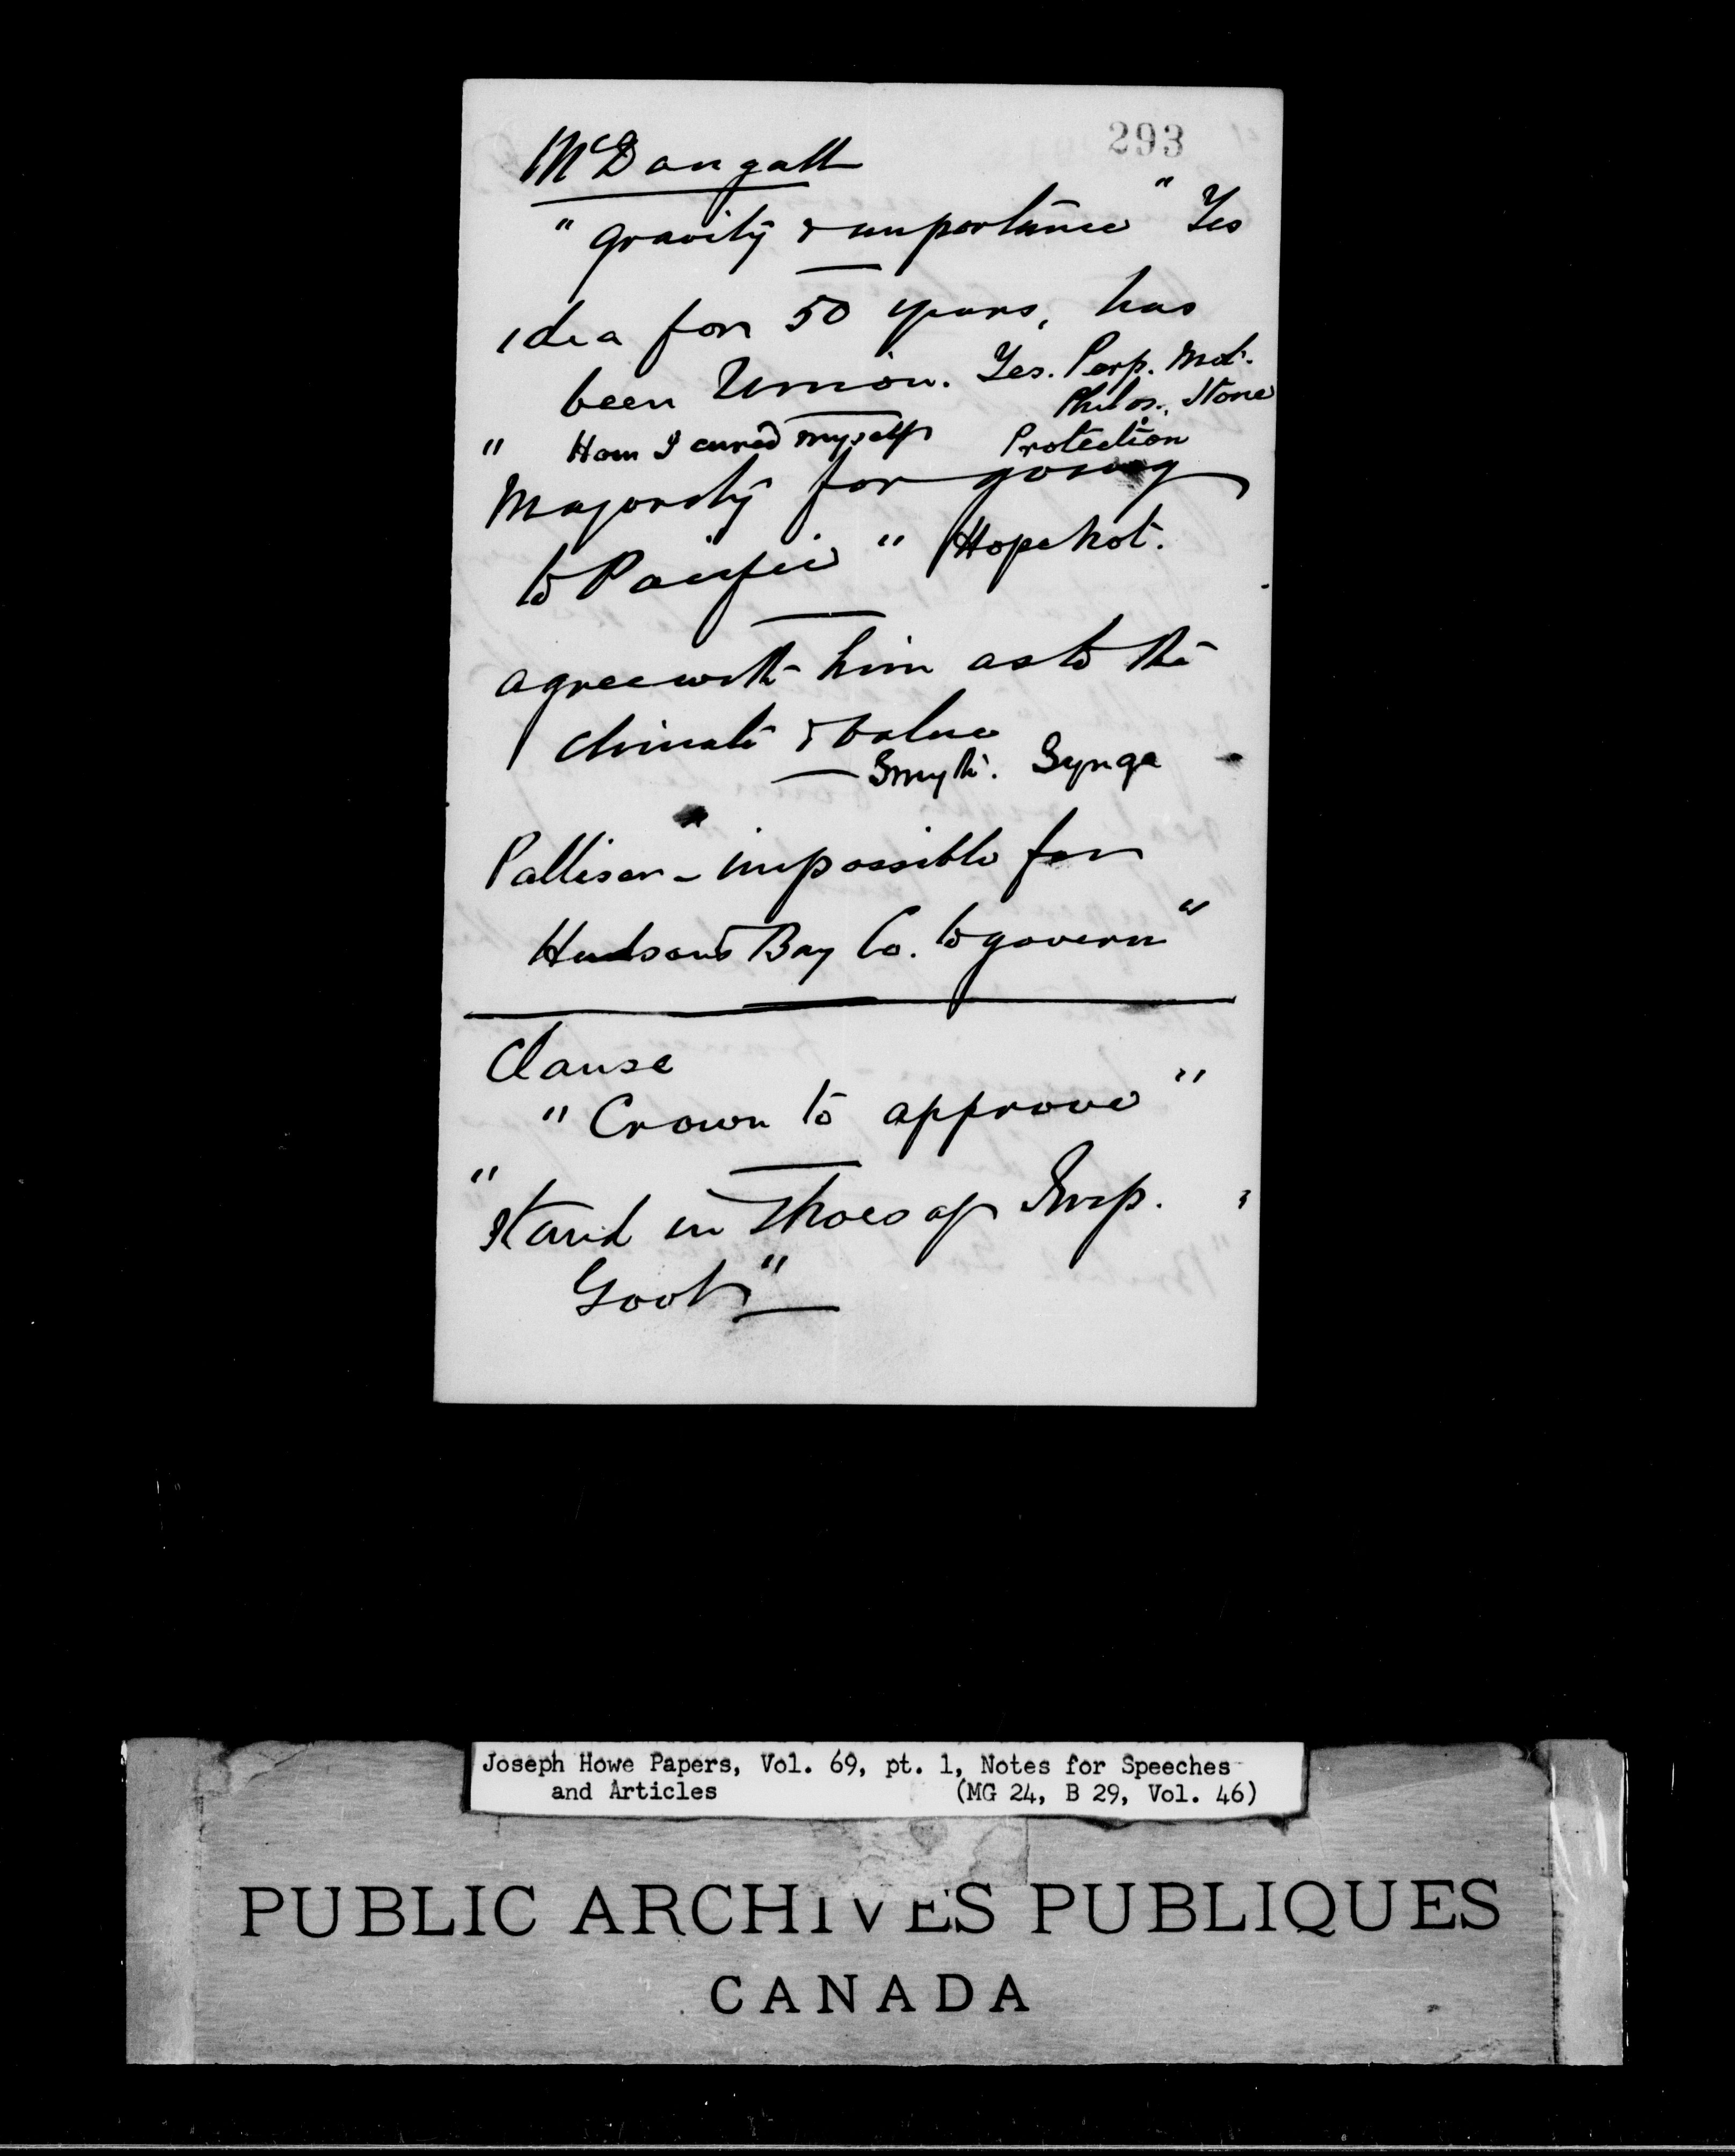 293
McDougall
"gravity & importance" Yes
idea for 50 years, has
been Union. Yes. Perp. Mot.
Philos. Stone
" How I cured myself Protection
Majority for going
to Pacific" Hope not.
agree with him as to the
climate & value
Smyth. Synge
Palliser - "impossible for
Hudson's Bay Co. to govern"
Clause
"Crown to approve"
"Stand in Shoes of Imp.
Govt"
Joseph Howe Papers, Vol. 69, pt. 1, Notes for Speeches
and Articles (MG 24, B 29, Vol. 46)
PUBLIC ARCHIVES PUBLIQUES
CANADA